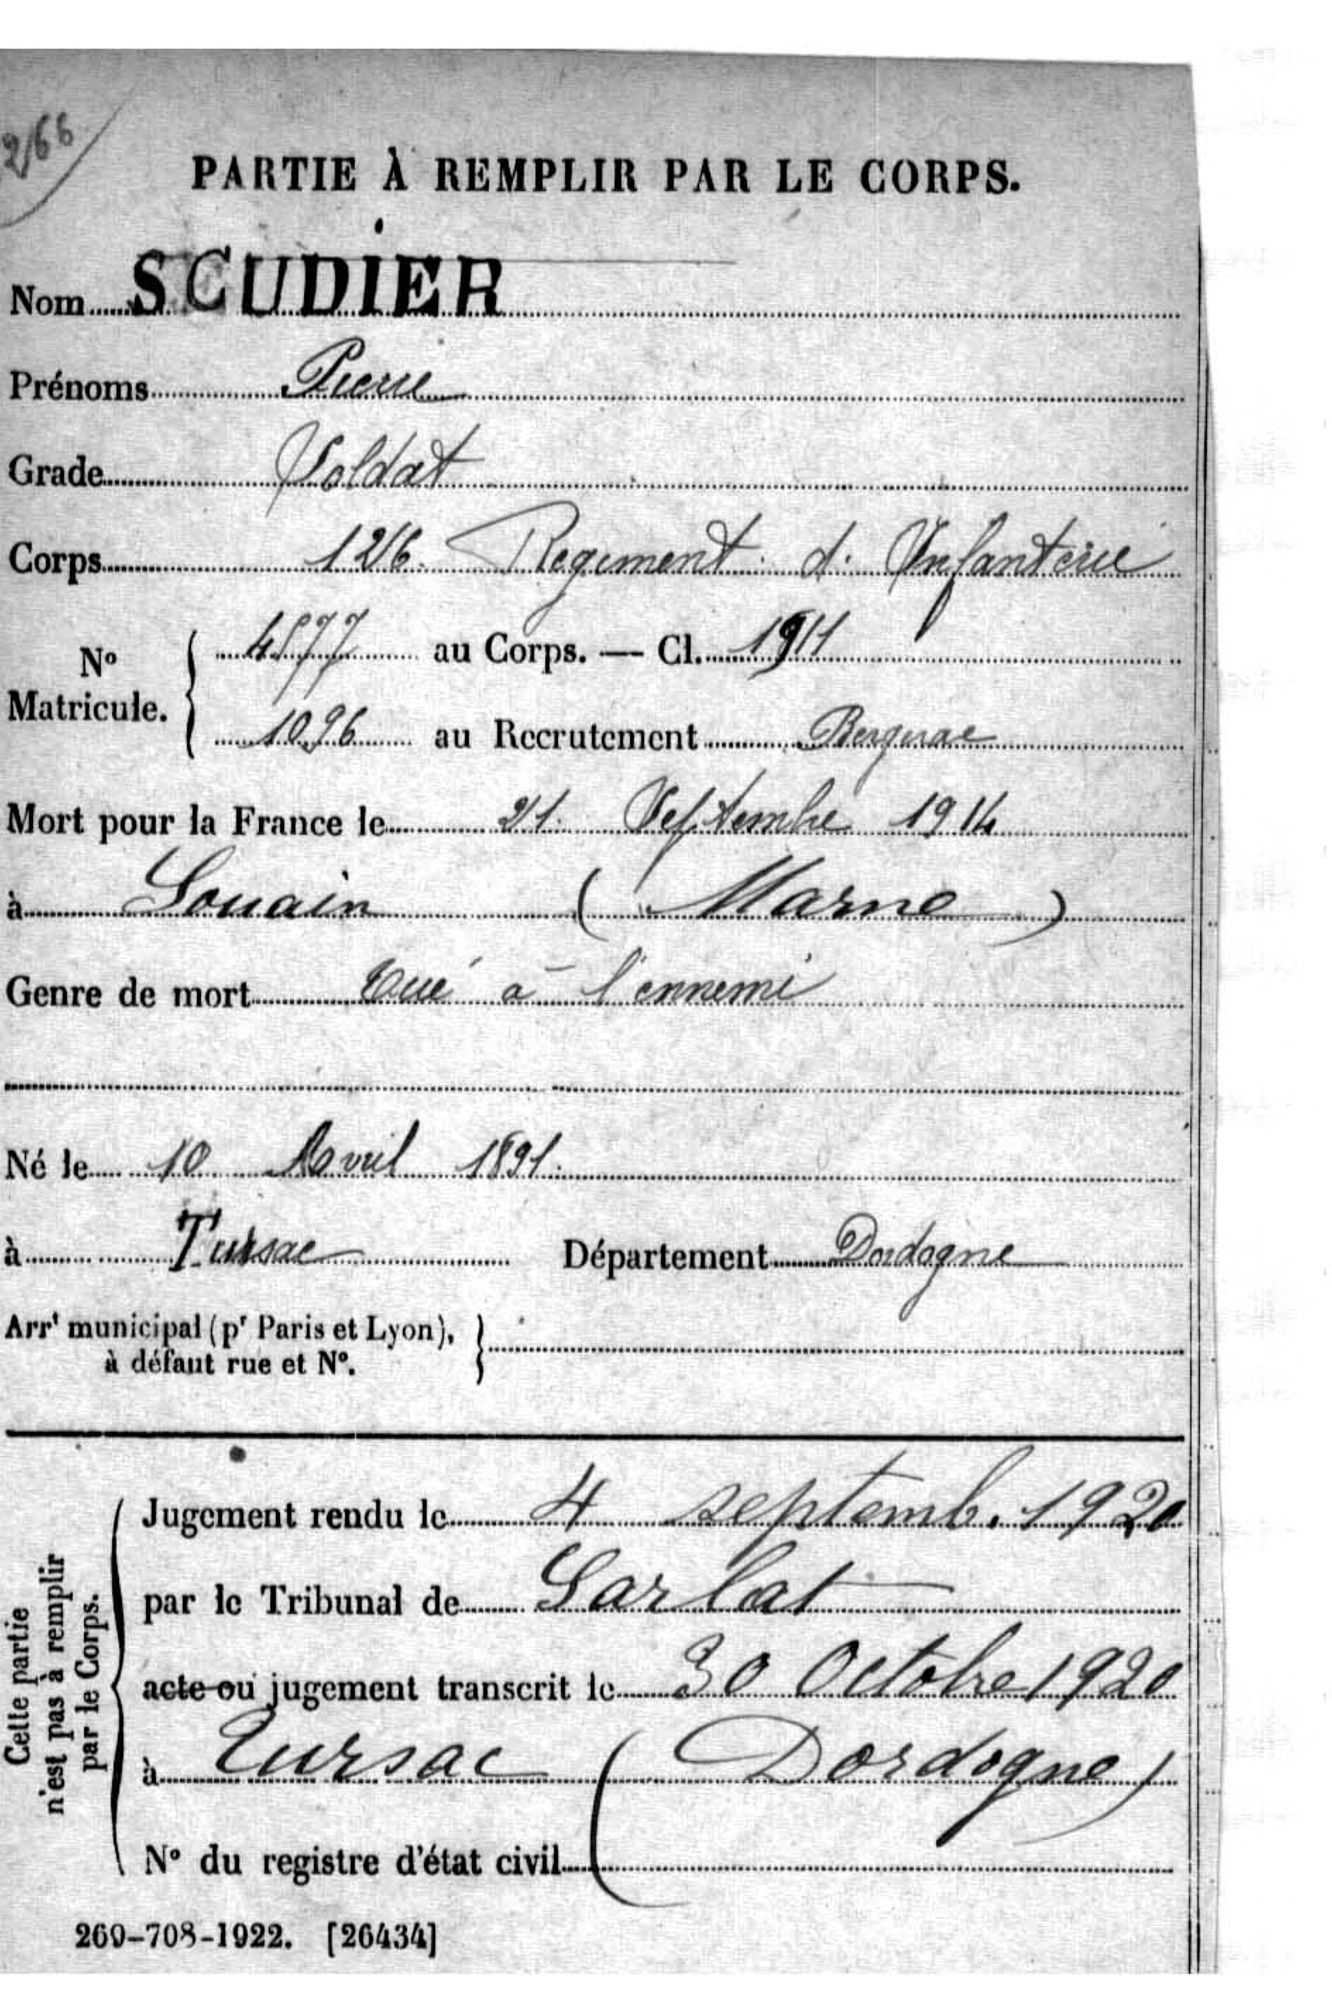 266
PARTIE À REMPLIR PAR LE CORPS.
Nom SCUDIER
Prénoms Pierre
Grade Soldat
Corps 126. Regiment d. Infanterie
N° Matricule. 4577 au Corps. — Cl. 1911
1096 au Recrutement Bergerac
Mort pour la France le 21. Septembre 1914
à Souain (Marne)
Genre de mort Tué à l'ennemi
Né le 10 Avril 1891.
à Tursac Département Dordogne
Arrt municipal (pr Paris et Lyon),
à défaut rue et N°.
Cette partie n'est pas à remplir par le Corps.
Jugement rendu le 4 septemb. 1920
par le Tribunal de Sarlat
acte ou jugement transcrit le 30 Octobre 1920
à Tursac (Dordogne)
N° du registre d'état civil
269-708-1922. [26434]